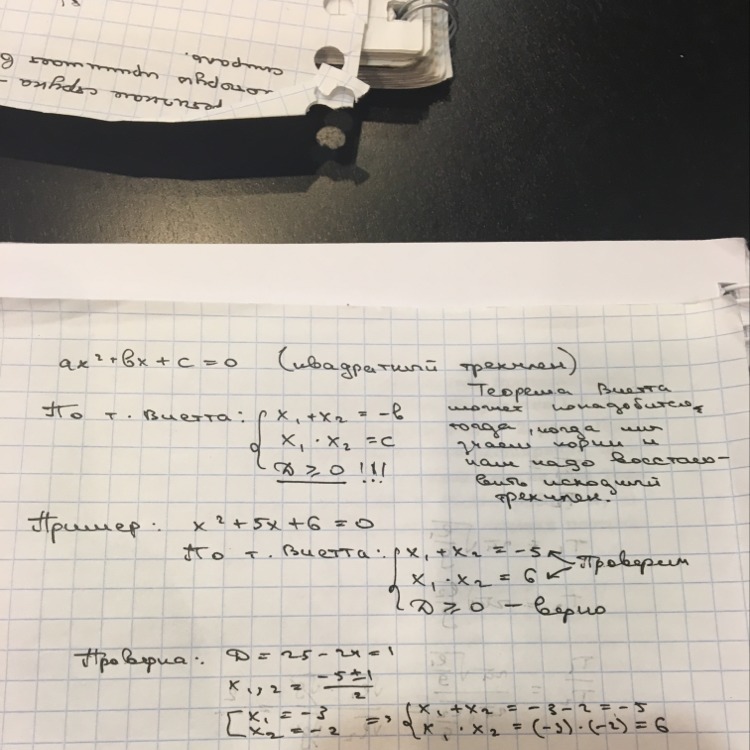 решаю струна-
которую
спираль.
ax²+bx+c=0 (квадратный трехчлен)
По т. Виетта: { x₁+x₂ = -b
x₁·x₂ = c
D ≥ 0 !!!
Теорема Виетта
может понадобится,
тогда, когда мы
знаем корни и
нам надо восстано-
вить исходный
трехчлен.
Пример: x²+5x+6=0
По т. Виетта: { x₁+x₂ = -5
x₁·x₂ = 6
D ≥ 0 – верно
Проверим
Проверка: D = 25-24=1
x₁,₂ = -5±1/2
[ x₁ = -3
x₂ = -2
=> { x₁+x₂ = -3-2 = -5
x₁·x₂ = (-3)·(-2) = 6